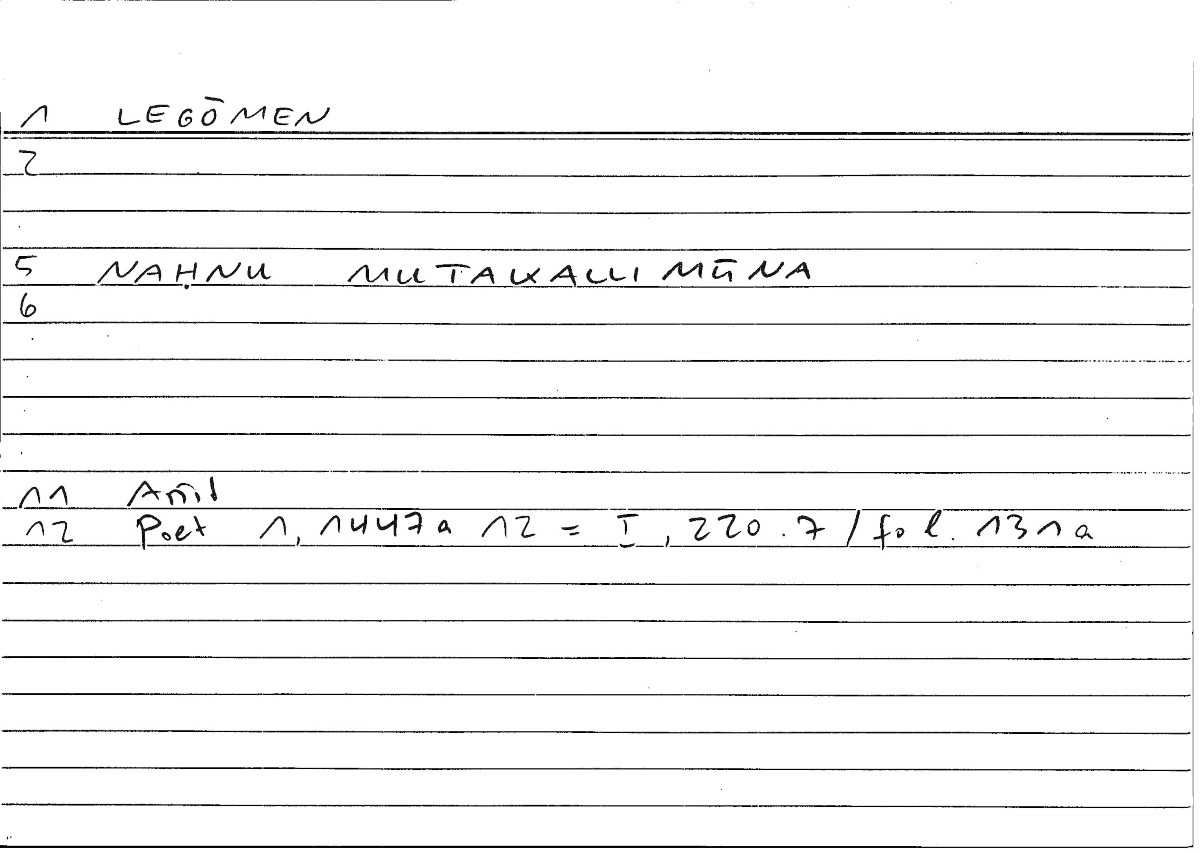 1 LEGŌMEN
2
5 NAḤNU MUTAKALLIMŪNA
6
11 Arist
12 Poet 1, 1447a 12 = I, 220.7 / fol. 131a